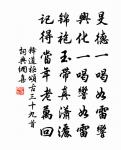 旻德一喝如雷響
興化一喝響如雷
錦袍玉帶真瀟灑
記得當年老萬回
釋道樞頌古三十九首
詞典網書